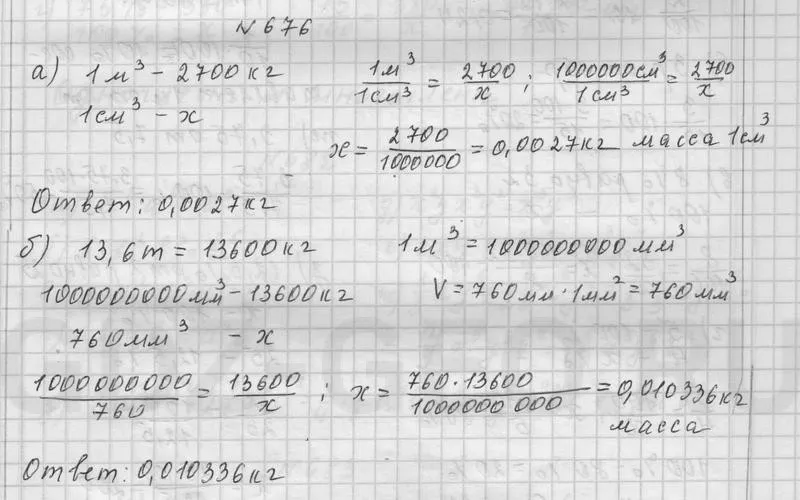 № 676
а) 1м³ - 2700кг
1см³ - х
1м³/1см³ = 2700/х ; 1000000см³/1см³ = 2700/х
х = 2700/1000000 = 0,0027кг масса 1см³
Ответ: 0,0027кг
б) 13,6т = 13600кг 1м³ = 1000000000мм³
1000000000мм³ - 13600кг V = 760мм · 1мм² = 760мм³
760мм³ - х
1000000000/760 = 13600/х ; х = 760·13600/1000000000 = 0,010336кг
масса
Ответ: 0,010336кг